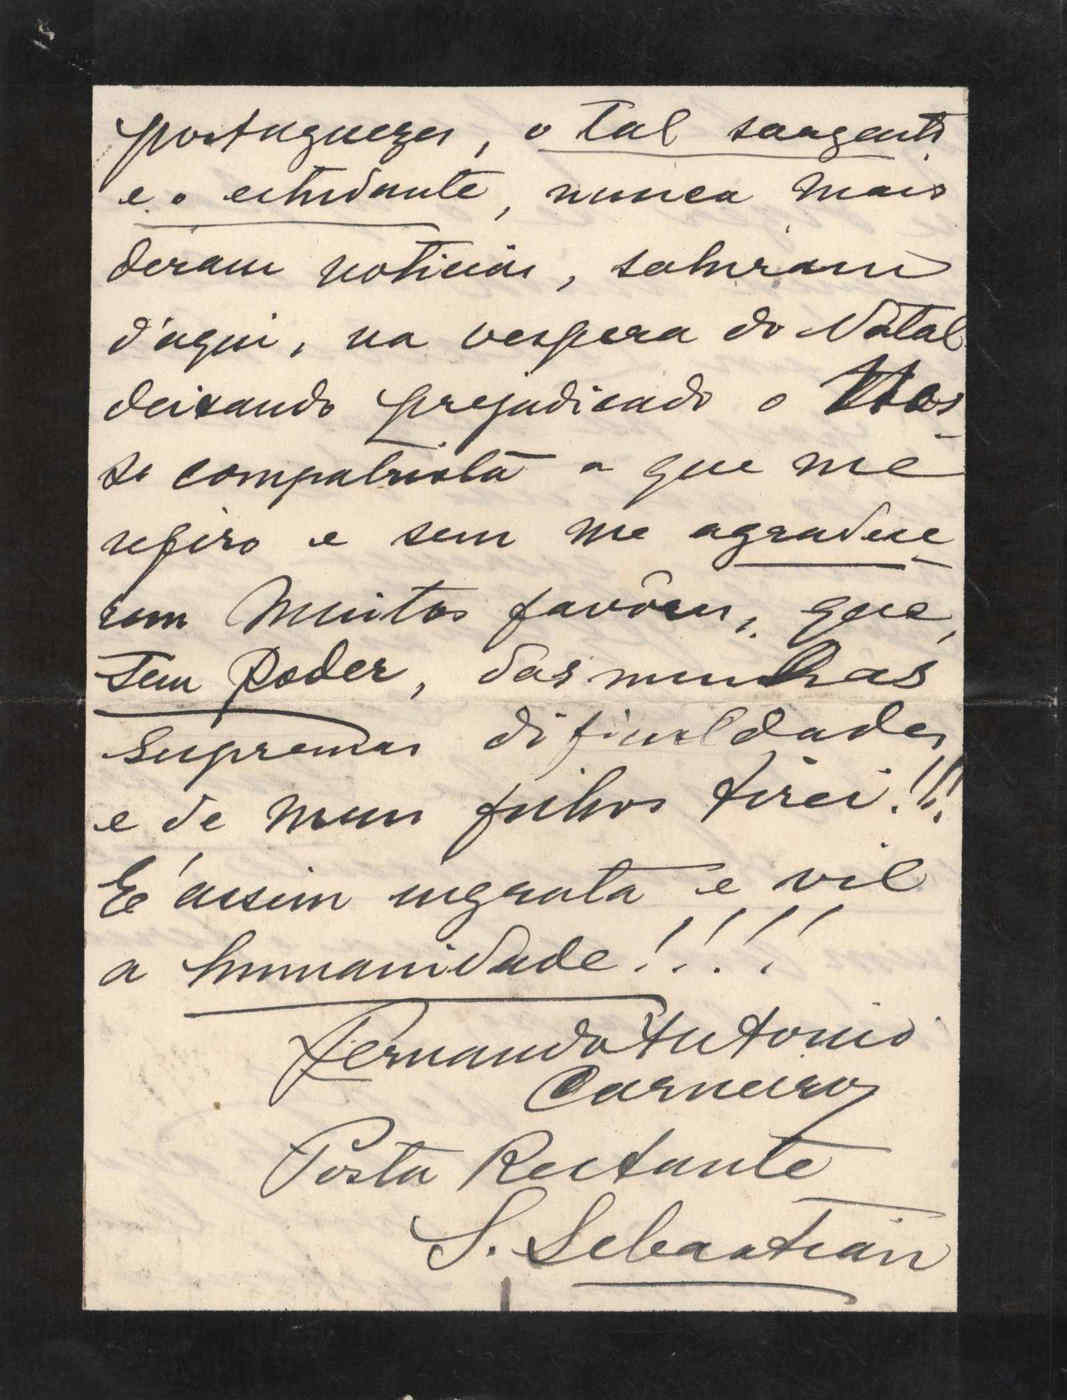 portuguezes, o tal sargento
e o estudante, nunca mais
déram noticias, sahiram
d'aqui, na vespera do Natal
deixando prejudicado o Nos-
so compatriota a que me
refiro e sem me agradece-
rem muitos favôres, que,
sem poder, das minhas
supremas dificuldades
e de meus filhos tirei!!!
E' assim ingrata e vil
a humanidade!!!!
Fernando Antonio
Carneiro
Posta Restante
S. Sebastian